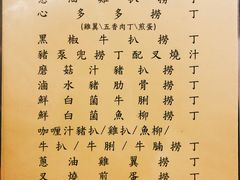 心多多撈丁
(雞翼\五香肉丁\煎蛋)
黑椒牛扒撈丁
豬泵兜撈丁配叉燒汁
磨菇汁豬扒撈丁
滷水豬肋骨撈丁
鮮白菌牛脷撈丁
鮮白菌魚柳撈丁
咖喱汁豬扒/雞扒/魚柳/
牛扒/牛脷/牛腩撈丁
蔥油雞翼撈丁
叉燒煎蛋撈丁